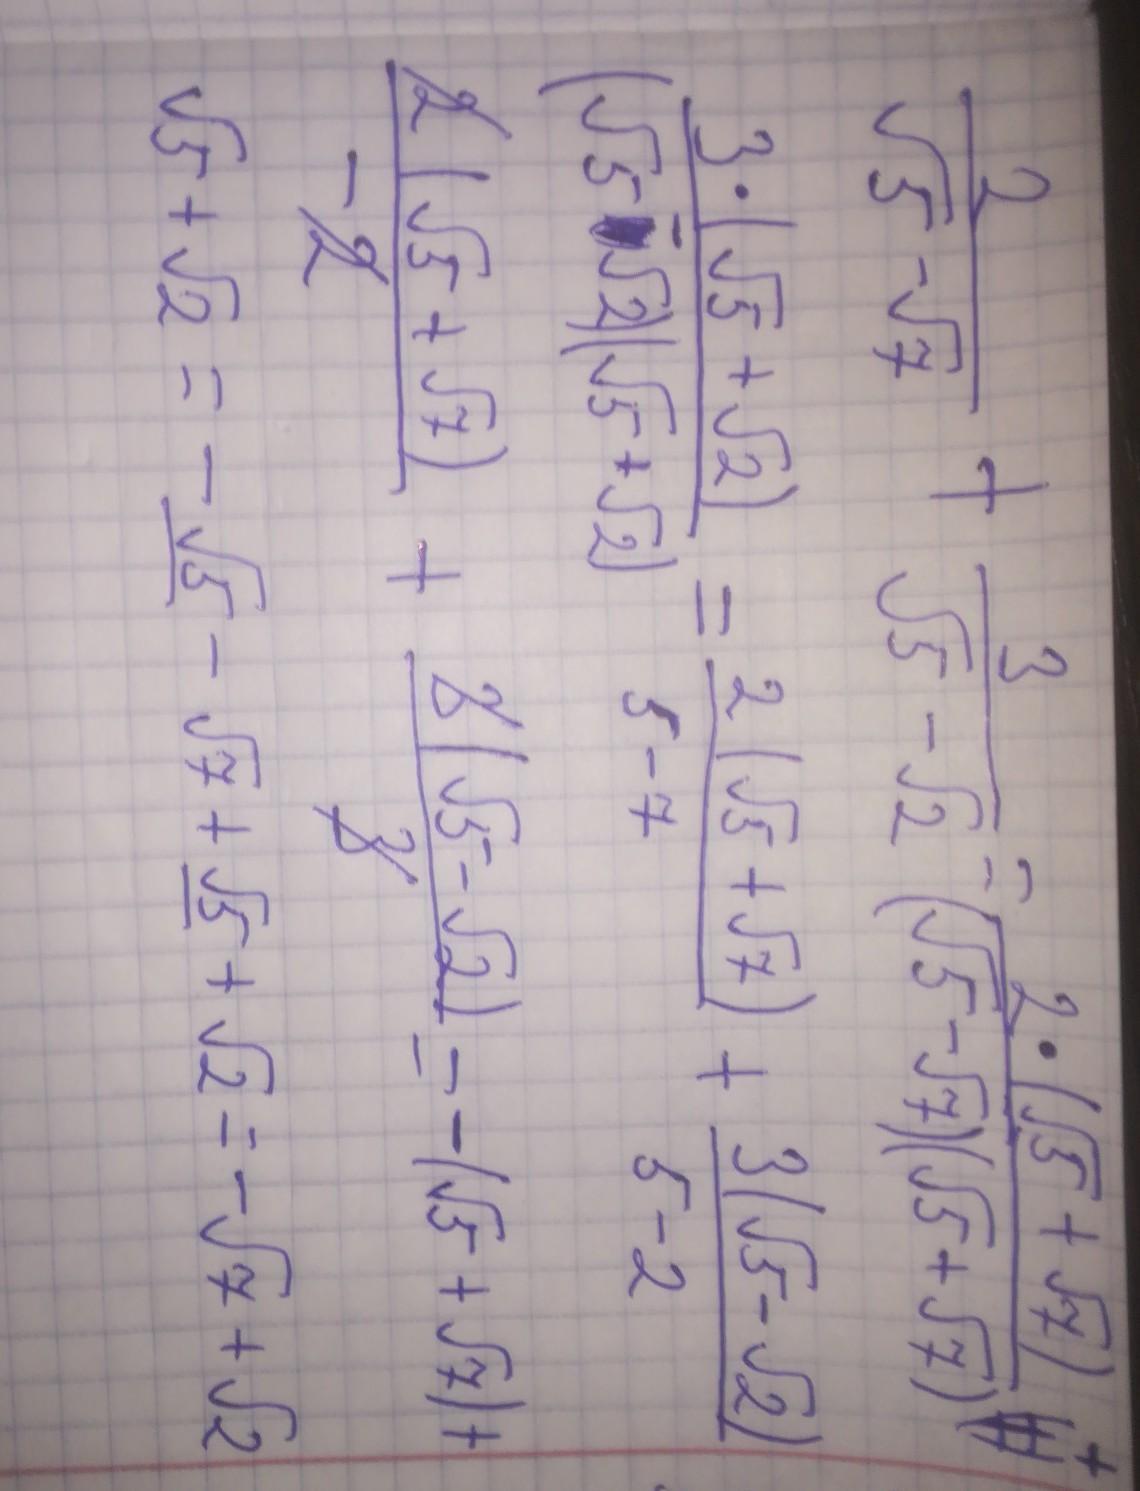 2/(√5-√7) + 3/(√5-√2) = 2·(√5+√7)/((√5-√7)(√5+√7)) +
3·(√5+√2)/((√5-√2)(√5+√2)) = 2(√5+√7)/(5-7) + 3(√5-√2)/(5-2)
2(√5+√7)/(-2) + 3(√5-√2)/3 = -(√5+√7)+
√5+√2 = -√5-√7+√5+√2=-√7+√2